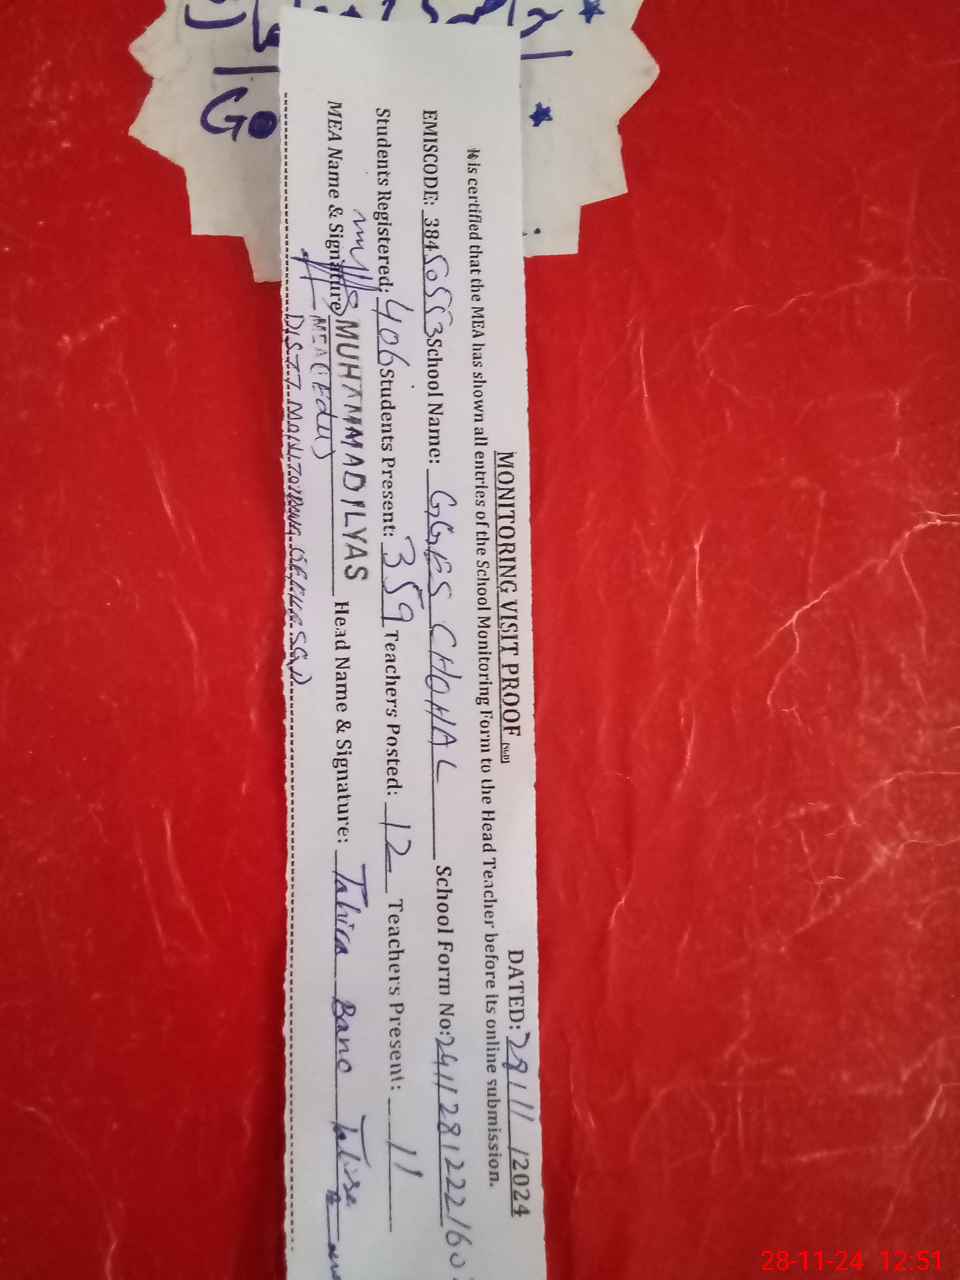 MONITORING VISIT PROOF
DATED: 28/11/2024
It is certified that the MEA has shown all entries of the School Monitoring Form to the Head Teacher before its online submission.
EMISCODE: 38450553 School Name: GGES CHOHAL School Form No: 2411281222160
Students Registered: 406 Students Present: 359 Teachers Posted: 12 Teachers Present: 11
MEA Name & Signature MUHAMMAD ILYAS Head Name & Signature: Tahira Bano
MEA (Edu)
DISTT MONITORING OFFICE SGD
GO
28-11-24 12:51